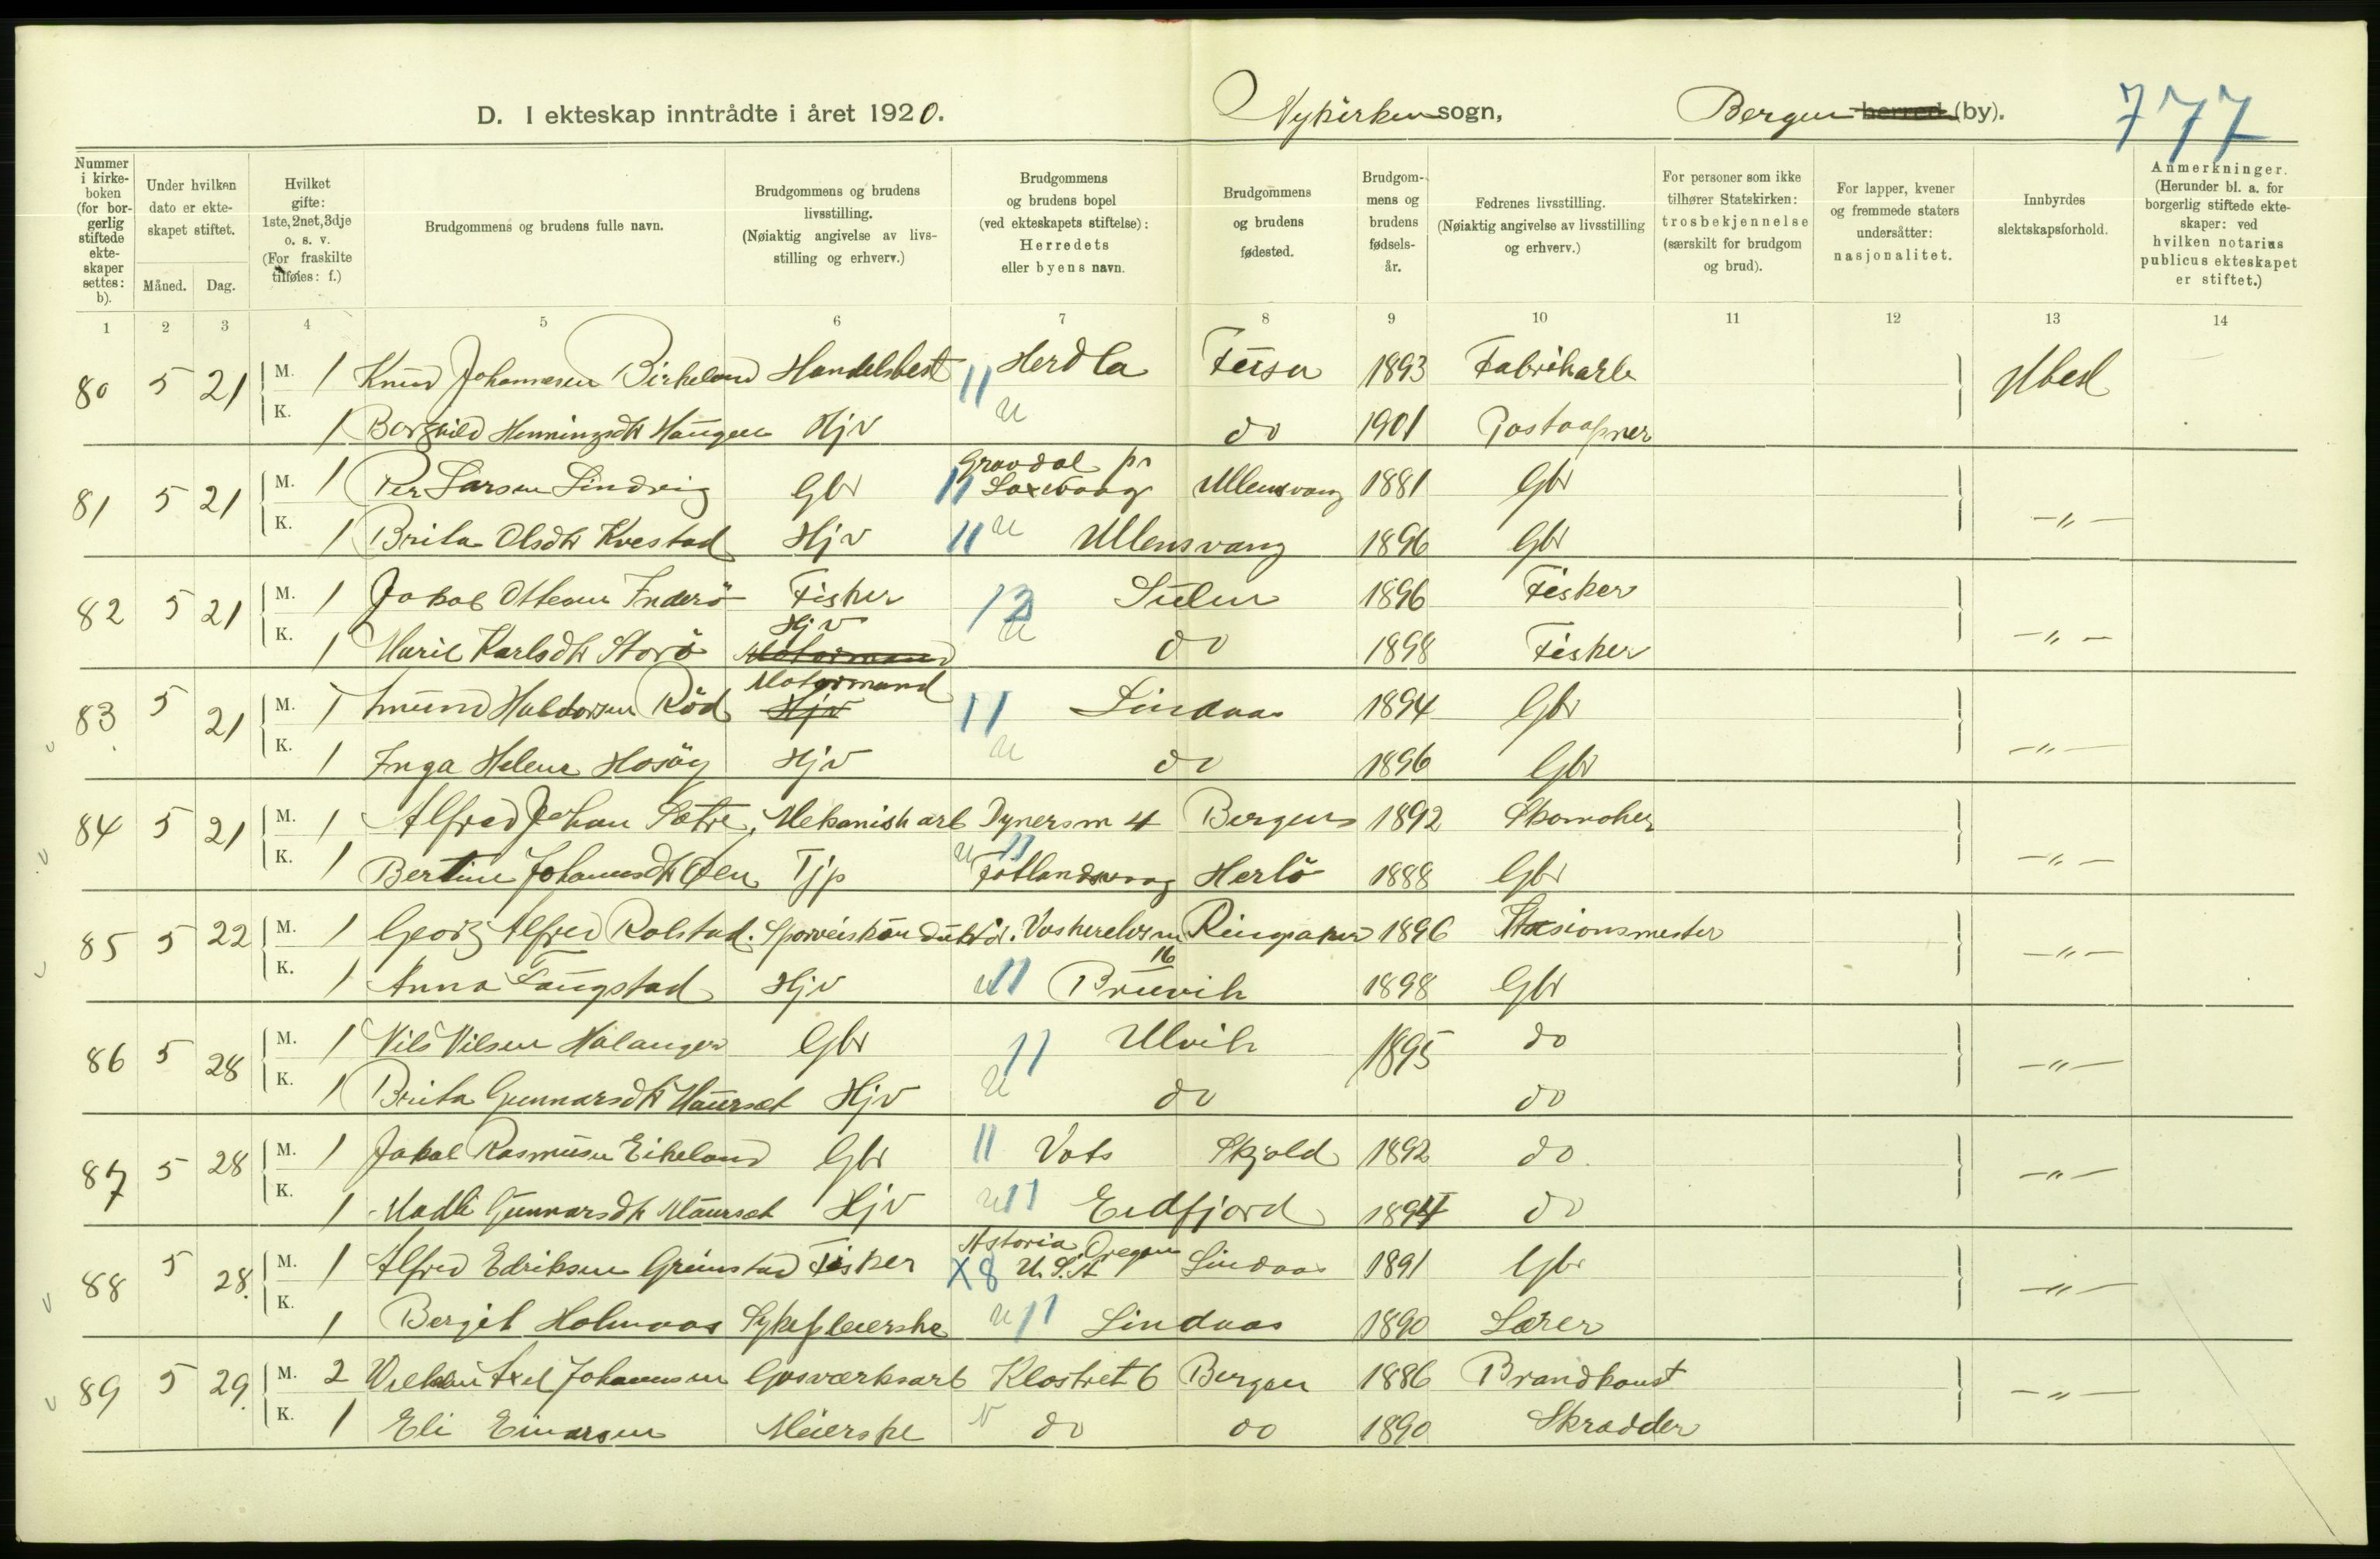 D. I ekteskap inntrådte i året 1920. Nykirken sogn, Bergen herred (by). 777
Nummer i kirkeboken (for borgerlig stiftede ekteskaper settes: b).
Under hvilken dato er ekteskapet stiftet.
Måned. Dag.
Hvilket gifte: 1ste, 2net, 3dje o. s. v. (For fraskilte tilføies: f.)
Brudgommens og brudens fulle navn.
Brudgommens og brudens livsstilling. (Nøiaktig angivelse av livsstilling og erhverv.)
Brudgommens og brudens bopel (ved ekteskapets stiftelse): Herredets eller byens navn.
Brudgommens og brudens fødested.
Brudgommens og brudens fødselsår.
Fedrenes livsstilling. (Nøiaktig angivelse av livsstilling og erhverv.)
For personer som ikke tilhører Statskirken: trosbekjennelse (særskilt for brudgom og brud).
For lapper, kvener og fremmede staters undersåtter: nasjonalitet.
Innbyrdes slektskapsforhold.
Anmerkninger. (Herunder bl. a. for borgerlig stiftede ekteskaper: ved hvilken notarius publicus ekteskapet er stiftet.)
1 2 3 4 5 6 7 8 9 10 11 12 13 14
80 5 21 M. 1 Knud Johannesen Birkeland Handelsbest 11 Herdla Feisa 1893 Fabrikarb Ubesl
K. 1 Borghild Henningsdtr Haugen Hjv u do 1901 Postaapner
81 5 21 M. 1 Per Larsen Lindvig Gbr 11 Gravdal pr Laxevaag Ullensvang 1881 Gbr
K. 1 Brita Olsdtr Kvestad Hjv 11 u Ullensvang 1896 Gbr —"—
82 5 21 M. 1 Jakob Ottesen Inderö Fisker 12 Sulen 1896 Fisker
K. 1 Marie Karlsdtr Storö Hjv Motormand u do 1898 Fisker —"—
83 5 21 M. 1 Haldorsen Röd Motormand Hjv 11 Lindaas 1894 Gbr
K. 1 Inga Helene Hosöy Hjv u do 1896 Gbr —"—
84 5 21 M. 1 Alfred Johan Sætre, Mekanisk arb Dynersm 4 Bergen 1892 Skomaker
K. 1 Bertine Johannesdtr Øen Tjp u 11 Fotlandsvaag Herlö 1888 Gbr —"—
85 5 22 M. 1 Georg Alfred Rolstad. Sporveiskonduktör. Vaskerelvsm 16 Ringsaker 1896 Stasionsmester
K. 1 Anna Langstad Hjv u 11 Bruvik 1898 Gbr —"—
86 5 28 M. 1 Nils Nilsen Hálanger Gbr 11 Ulvik 1895 do
K. 1 Brita Gunnarsdtr Maurset Hjv u do do —"—
87 5 28 M. 1 Jakob Rasmusen Eikeland Gbr 11 Vats Skjold 1892 do
K. 1 Madli Gunnarsdtr Maurset Hjv u 11 Eidfjord 1894 do —"—
88 5 28. M. 1 Alfred Edriksen Grimstad Fisker X8 Astoria, Oregon U. S. A Lindaas 1891 Gbr
K. 1 Bergit Holmaas Sykepleierske u 11 Lindaas 1890 Lærer —"—
89 5 29. M. 2 Axel Johannesen Gasværksarb Klostret 6 Bergen 1886 Brandkonst
K. 1 Eli Einarsen Meierske N do do 1890 Skradder —"—